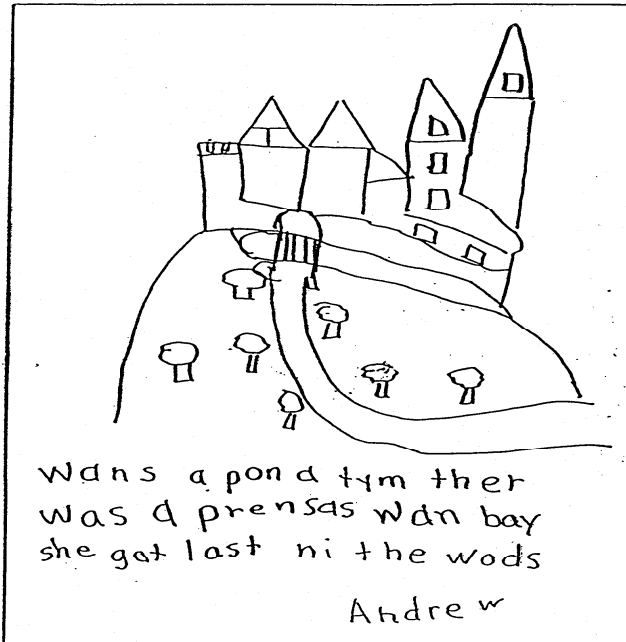 wans a pon a tym ther
was a prensas wan bay
she got last ni the wods
Andrew